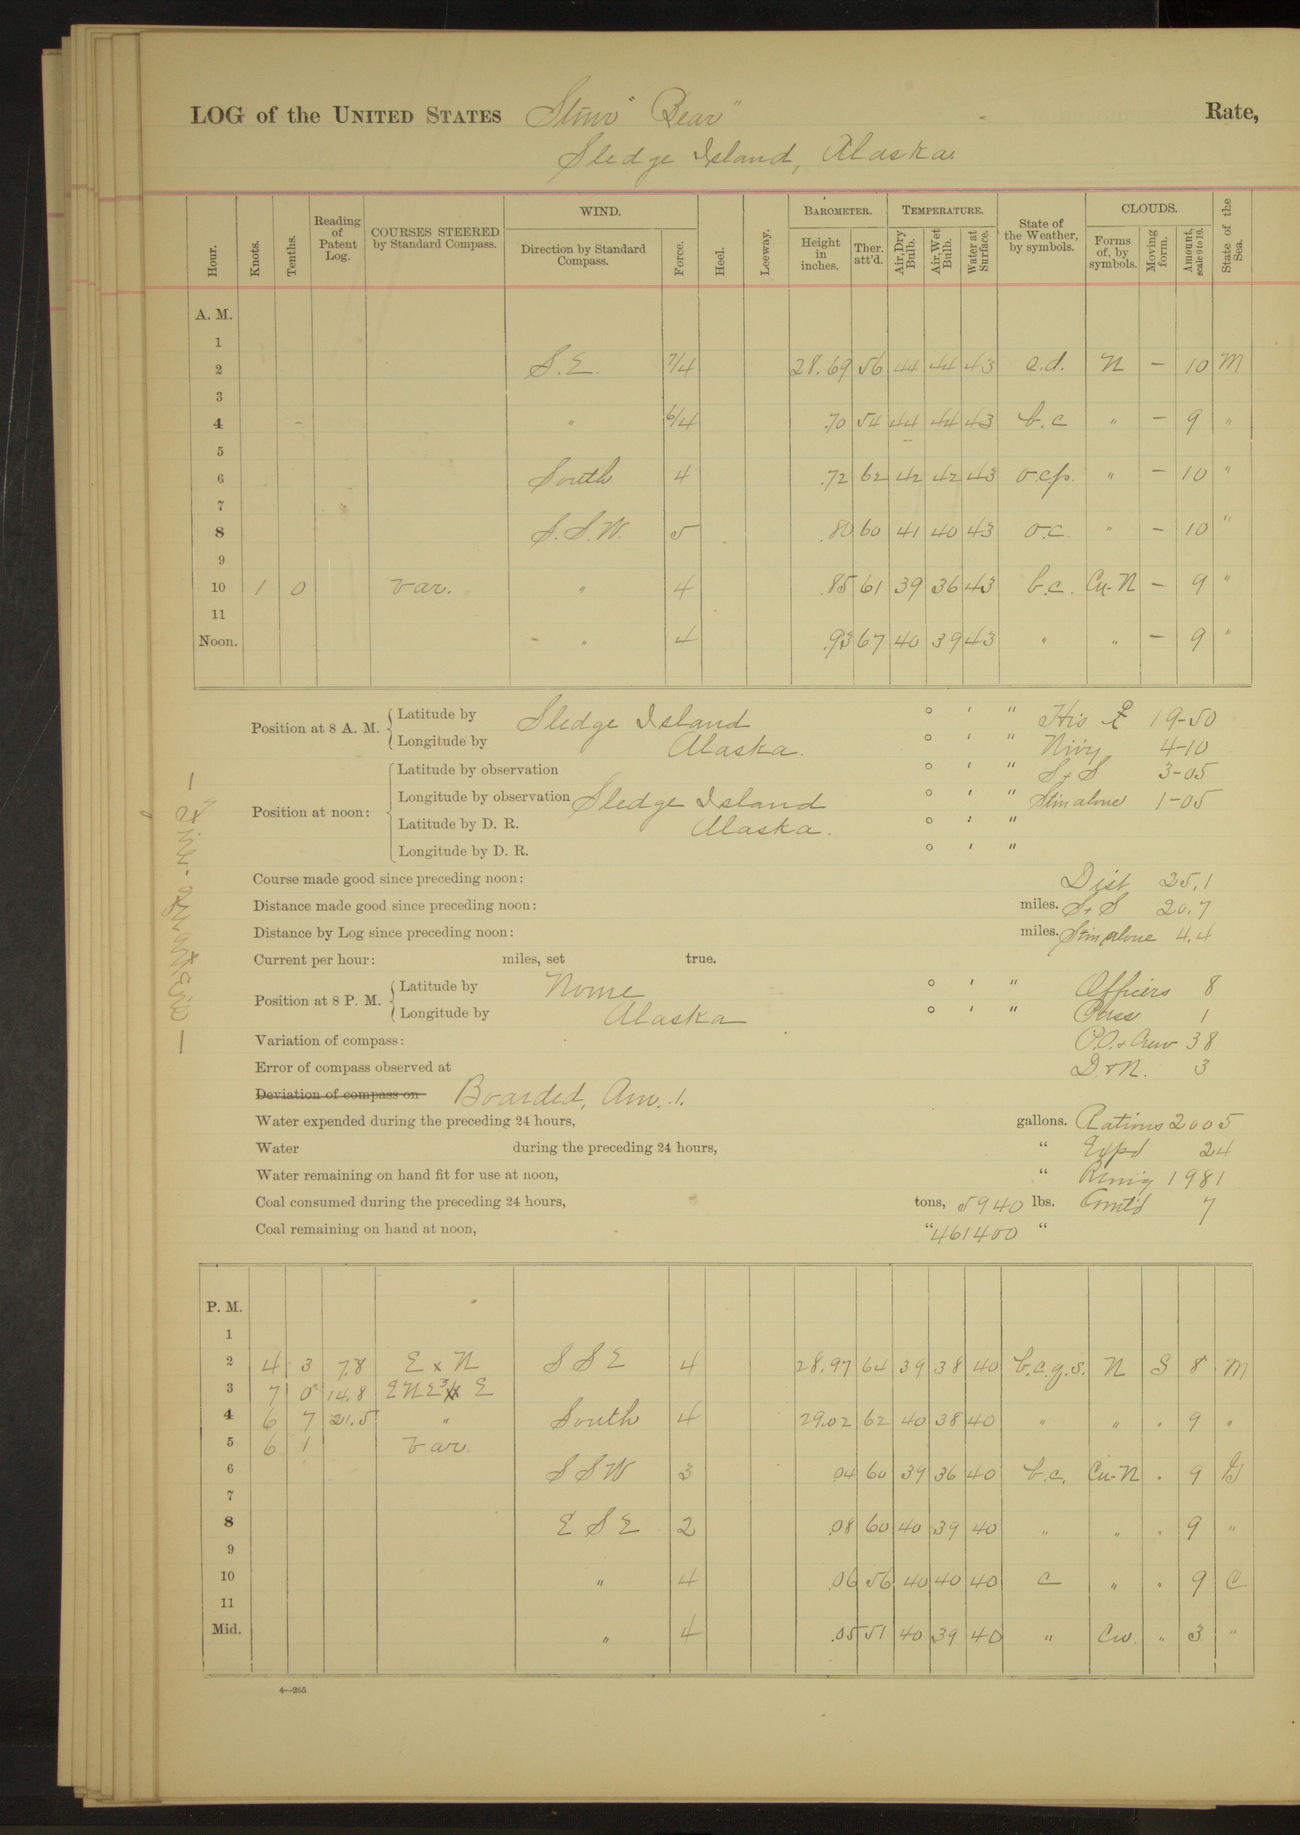 LOG of the UNITED STATES Stmr "Bear" Rate,
Sledge Island, Alaska.
Hour. Knots. Tenths. Reading of Patent Log. COURSES STEERED by Standard Compass. WIND. Direction by Standard Compass. Force. Heel. Leeway. BAROMETER. Height in inches. Ther. att'd. TEMPERATURE. Air, Dry Bulb. Air, Wet Bulb. Water at Surface. State of the Weather, by symbols. CLOUDS. Forms of, by symbols. Moving form. Amount, scale 0 to 10. State of the Sea.
A. M.
1
2 S.E. 7/4 28.69 56 44 44 43 c.d. N — 10 M
3
4 " 6/4 .70 54 44 44 43 b.c " — 9 "
5
6 South 4 .72 62 42 42 43 o.c.p. " — 10 "
7
8 S.S.W. 5 .80 60 41 40 43 o.c. " — 10 "
9
10 1 0 var. " 4 .85 61 39 36 43 b.c. Cu-N — 9 "
11
Noon. " 4 .93 67 40 39 43 " " — 9 "
Position at 8 A. M. Latitude by Sledge Island ° ' " 19-50
Longitude by Alaska. ° ' " 4-10
Position at noon: Latitude by observation ° ' " S+S 3-05
Longitude by observation Sledge Island ° ' " Stm alone 1-05
Latitude by D. R. Alaska. ° ' "
Longitude by D. R. ° ' "
Course made good since preceding noon: Dist 25.1
Distance made good since preceding noon: miles. S+S 20.7
Distance by Log since preceding noon: miles. Stm alone 4.4
Current per hour: miles, set true.
Position at 8 P. M. Latitude by Nome ° ' " Officers 8
Longitude by Alaska ° ' " Pass 1
Variation of compass: P.O.+Crew 38
Error of compass observed at D.+N. 3
Deviation of compass on Boarded, Am. 1.
Water expended during the preceding 24 hours, gallons. Rations 2005
Water during the preceding 24 hours, " Expd 24
Water remaining on hand fit for use at noon, " Remig 1981
Coal consumed during the preceding 24 hours, tons, 5940 lbs. Comt'd 7
Coal remaining on hand at noon, " 461400 "
P. M.
1
2 4 3 7.8 E x N S S E 4 28.97 64 39 38 40 b.c.g.s. N S 8 M
3 7 0 14.8 E
4 6 7 21.5 " South 4 29.02 62 40 38 40 " " " 9 "
5 6 1 var.
6 S S W 3 .04 60 39 36 40 b.c. Cu-N " 9
7
8 E S E 2 .08 60 40 39 40 " " " 9 "
9
10 " 4 .06 56 40 40 40 c " " 9 C
11
Mid. " 4 .05 51 40 39 40 " Cu. " 3 "
4—265